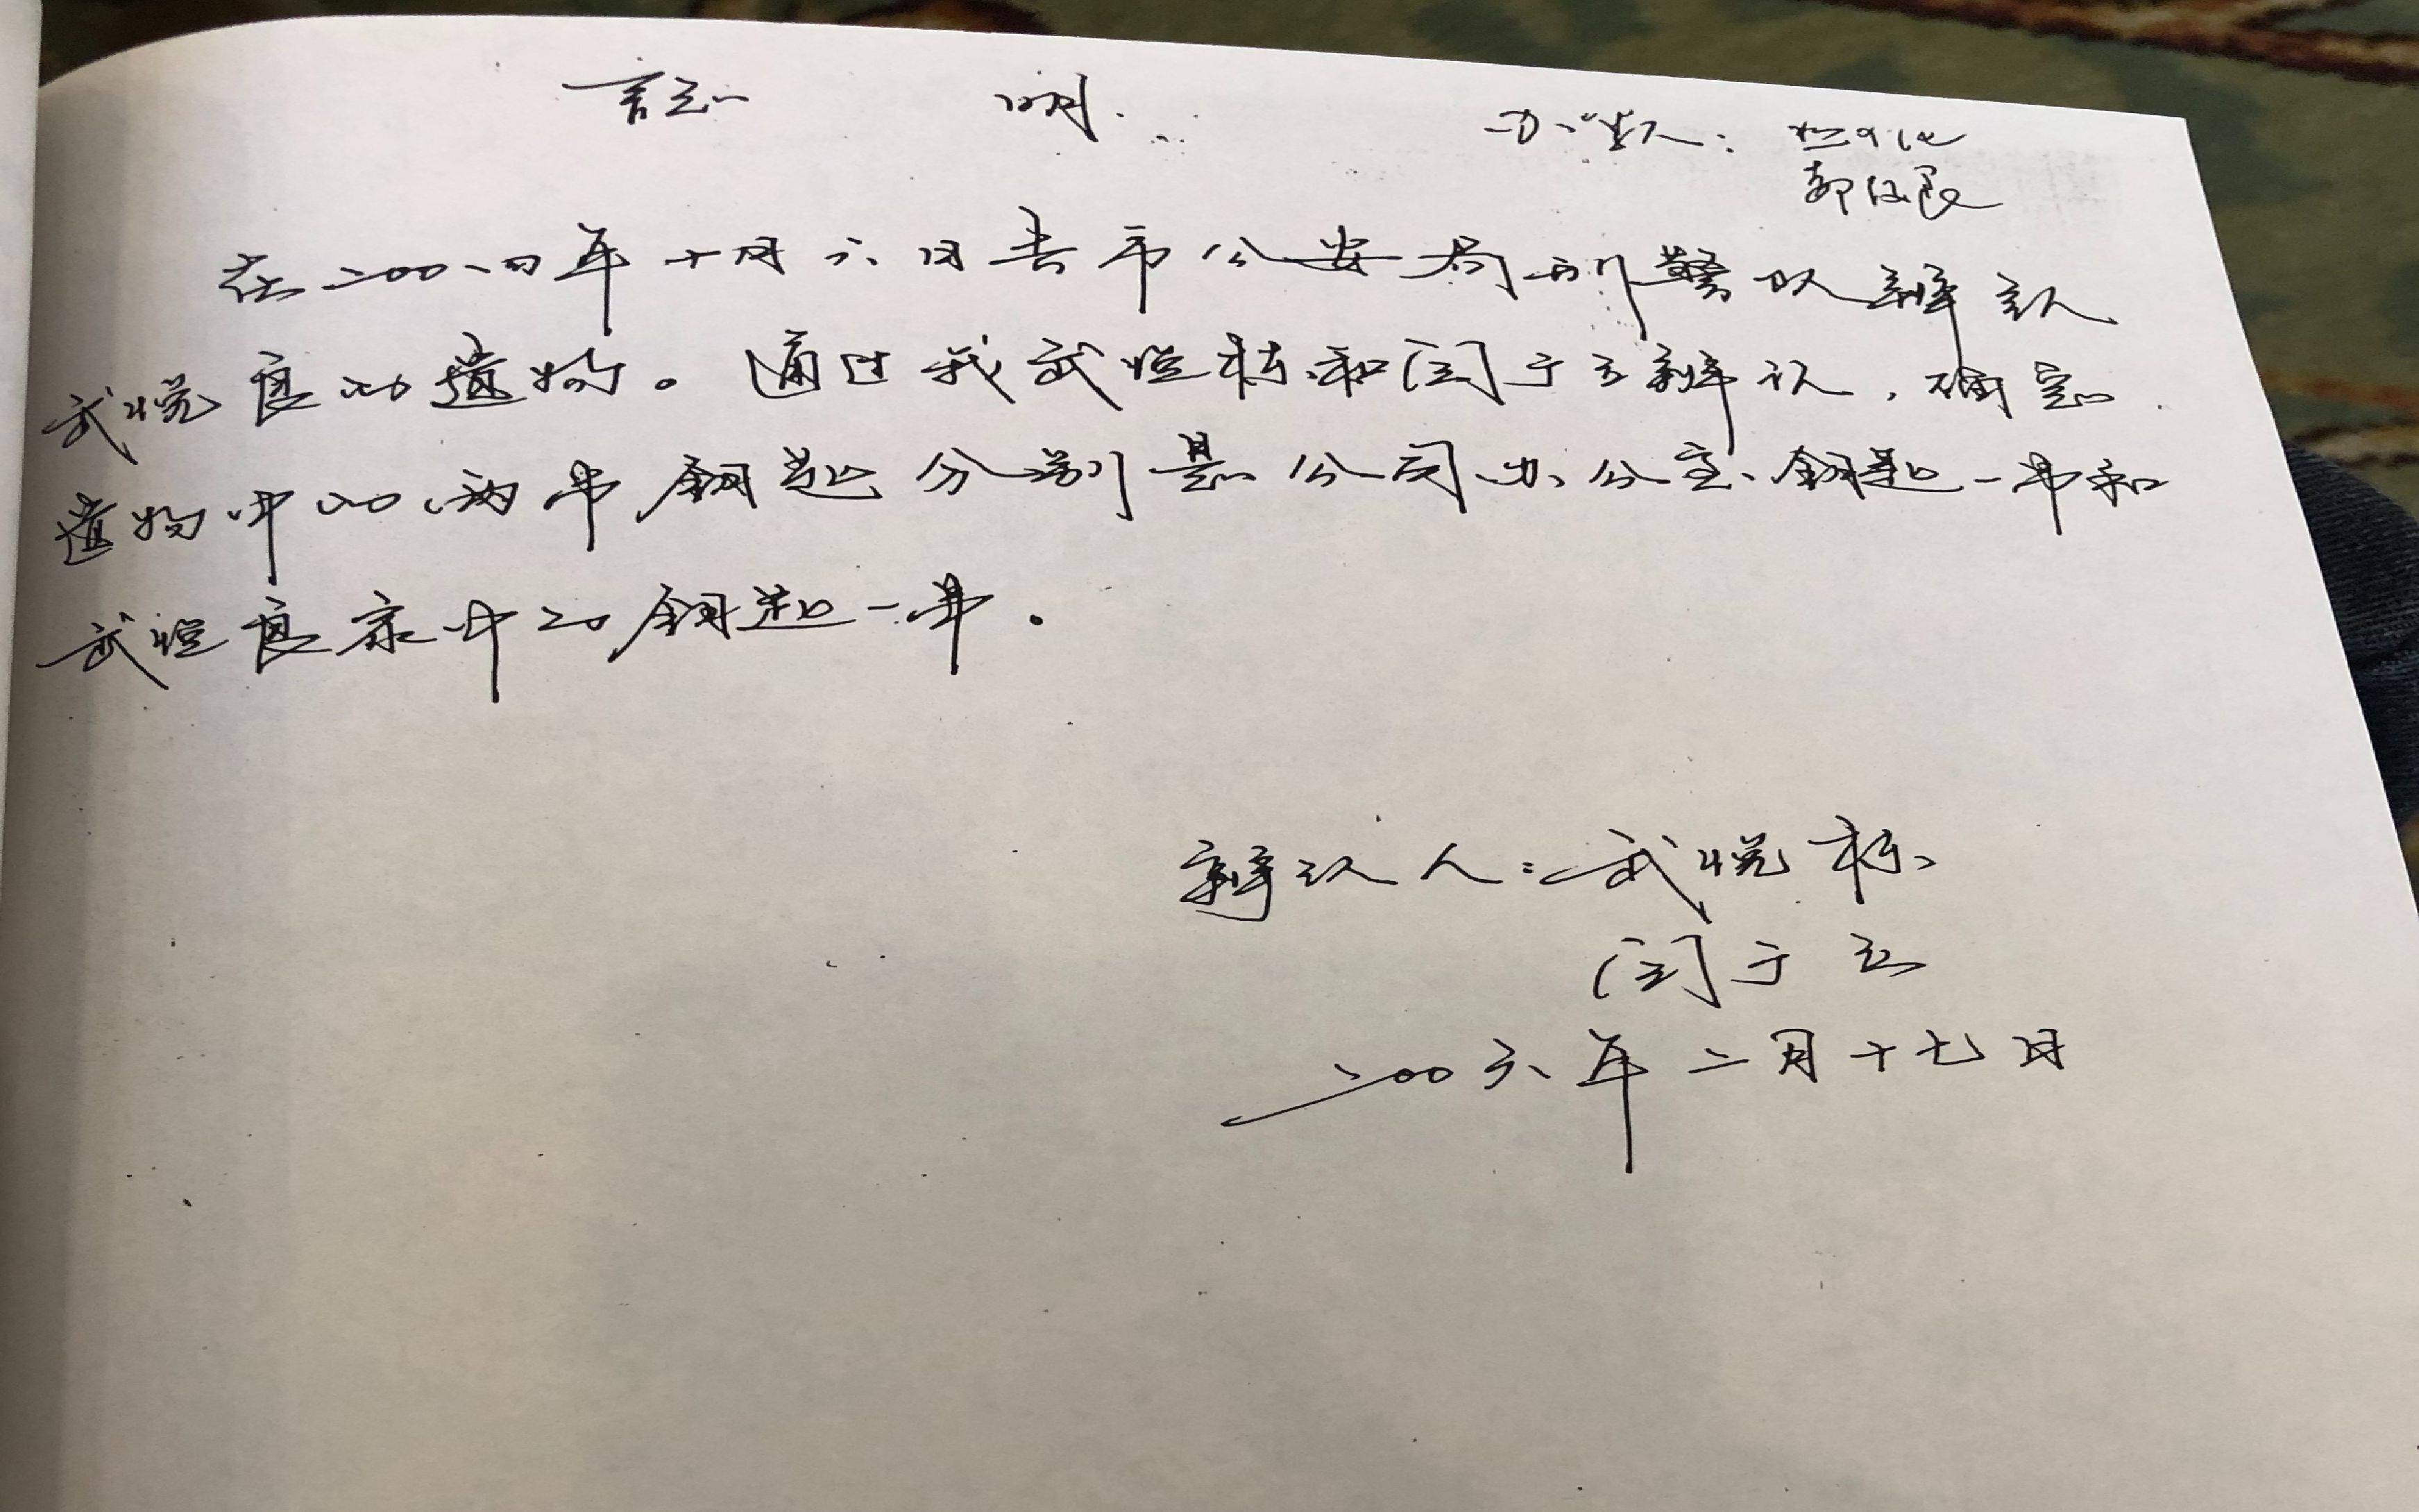 証 明
办案人:
郭
在二00四年十月六日去市公安局刑警队辨认
武悦良的遗物。通过我武悦栋和闫于立辨认,确定
遗物中的两串钥匙分别是公司办公室钥匙一串和
武悦良家中的钥匙一串.
辨认人:武悦栋
闫于立
二00六年二月十七日